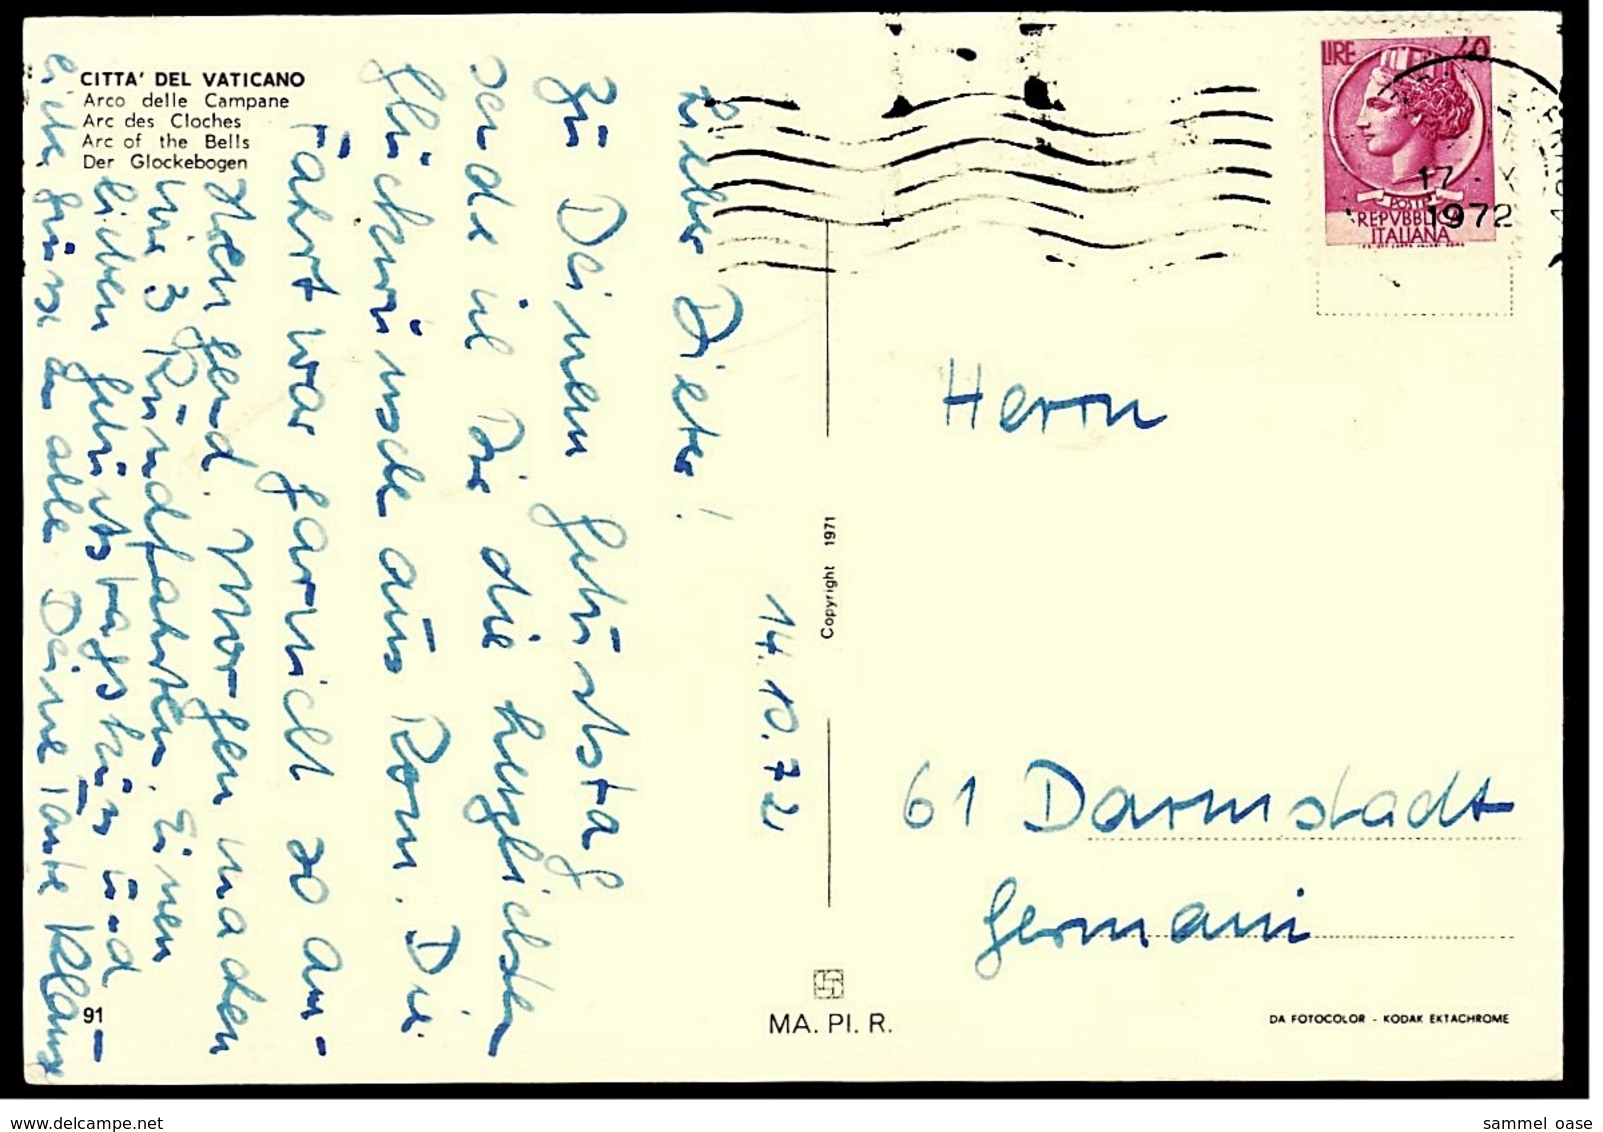 CITTA' DEL VATICANO
Arco delle Campane
Arc des Cloches
Arc of the Bells
Der Glockebogen
14.10.72
Lieber Dieter!
Zu Deinem Geburtstag
sende ich Dir die herzlichsten
Glückwünsche aus Rom. Die
Fahrt war garnicht so an-
strengend. Morgen machen
wir 3 Rundfahrten. Einen
lieben Geburtstagskuss und
liebe Grüsse an alle Deine Tante
91
Copyright 1971
MA. PI. R.
DA FOTOCOLOR - KODAK EKTACHROME
LIRE 40
POSTE
REPVBBLICA
ITALIANA
17
1972
Herrn
61 Darmstadt
Germani
www.delcampe.net
sammel oase